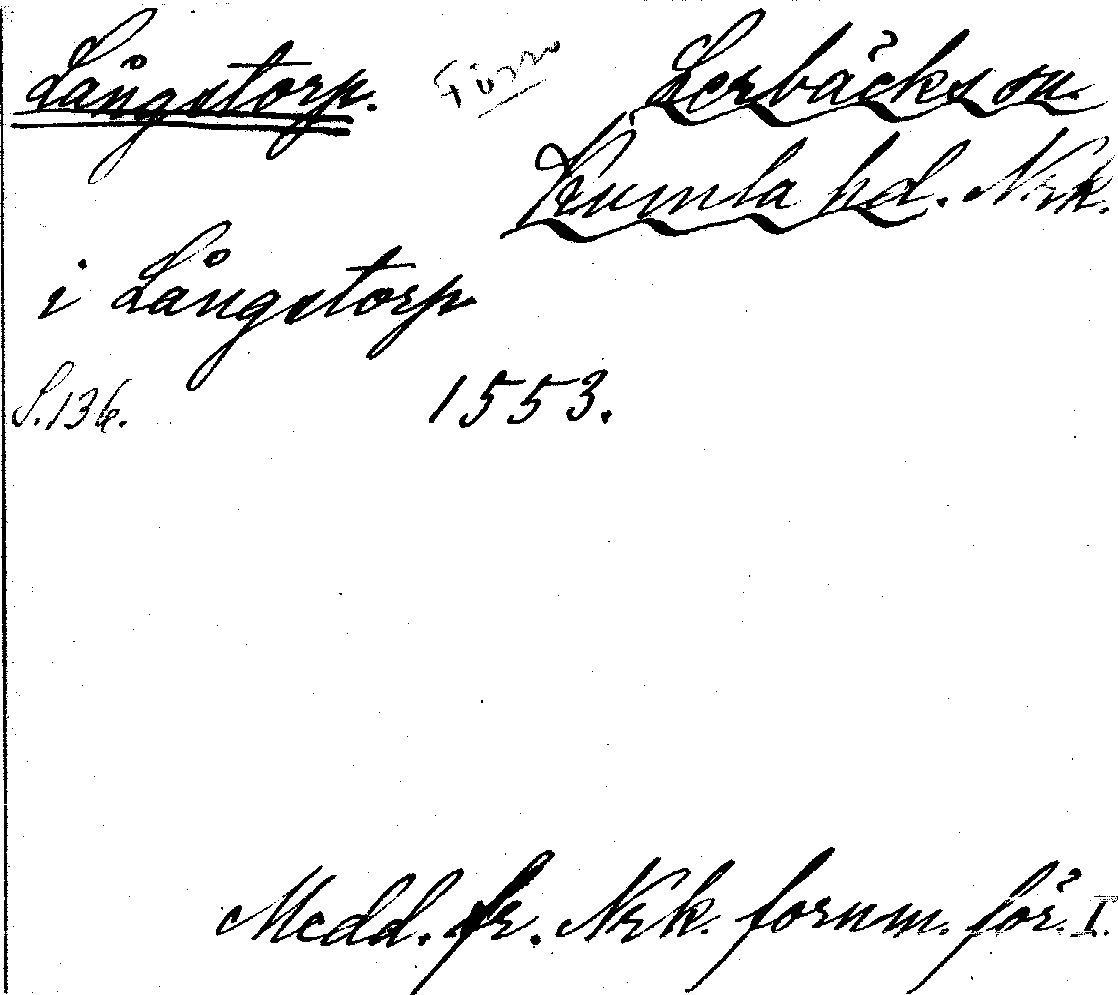 Långstorp. Förr Lerbäcks sn.
Kumla hd. Nrk.
i Långstorp
S. 136. 1553.
Medd. fr. Nrk. fornm. för. I.